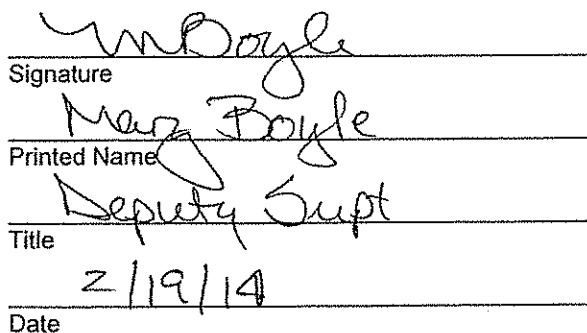 MBoyle
Signature
Mary Boyle
Printed Name
Deputy Supt
Title
2/19/14
Date